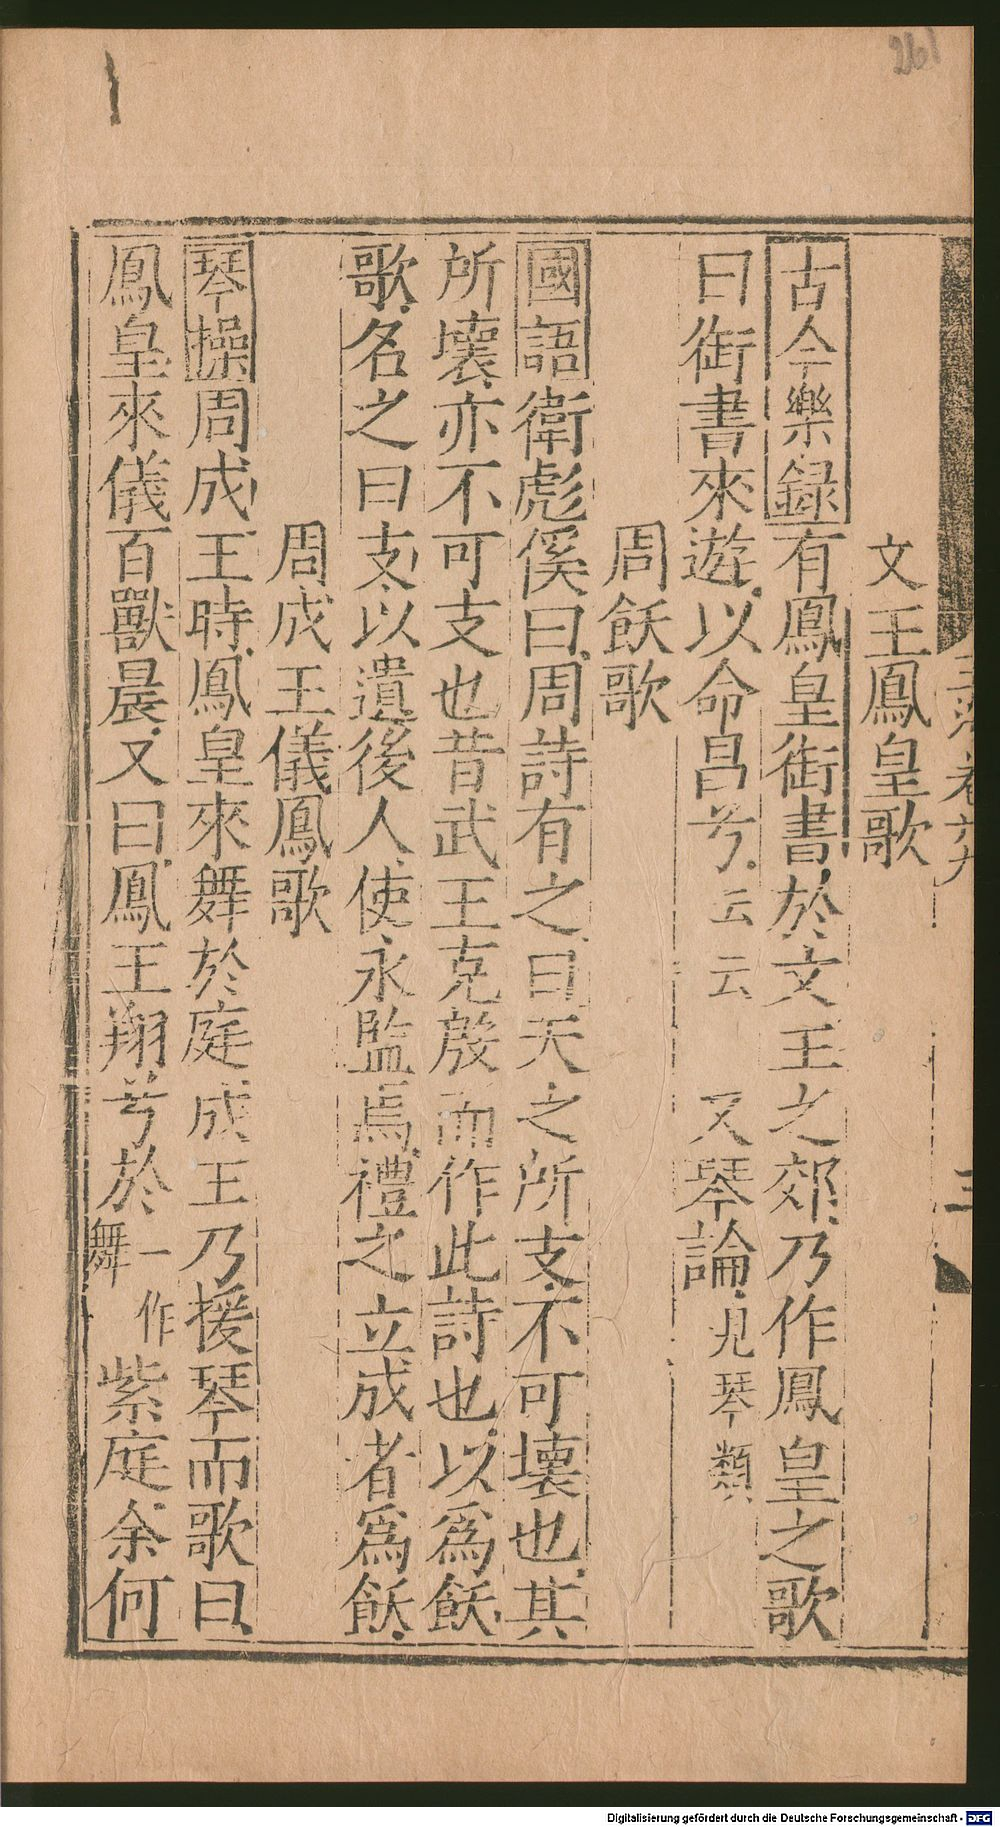 261
文王鳳皇歌
古今樂録有鳳皇銜書於文王之郊乃作鳳皇之歌
曰銜書來遊以命昌兮云云 又琴論見琴類
周飫歌
國語衛彪傒曰周詩有之曰天之所支不可壞也其
所壞亦不可支也昔武王克殷而作此詩也以爲飫
歌名之曰支以遺後人使永監焉禮之立成者爲飫
周成王儀鳳歌
琴操周成王時鳳皇來舞於庭成王乃援琴而歌曰
鳳皇來儀百獸晨又曰鳳王翔兮於一作舞紫庭余何
Digitalisierung gefördert durch die Deutsche Forschungsgemeinschaft - DFG